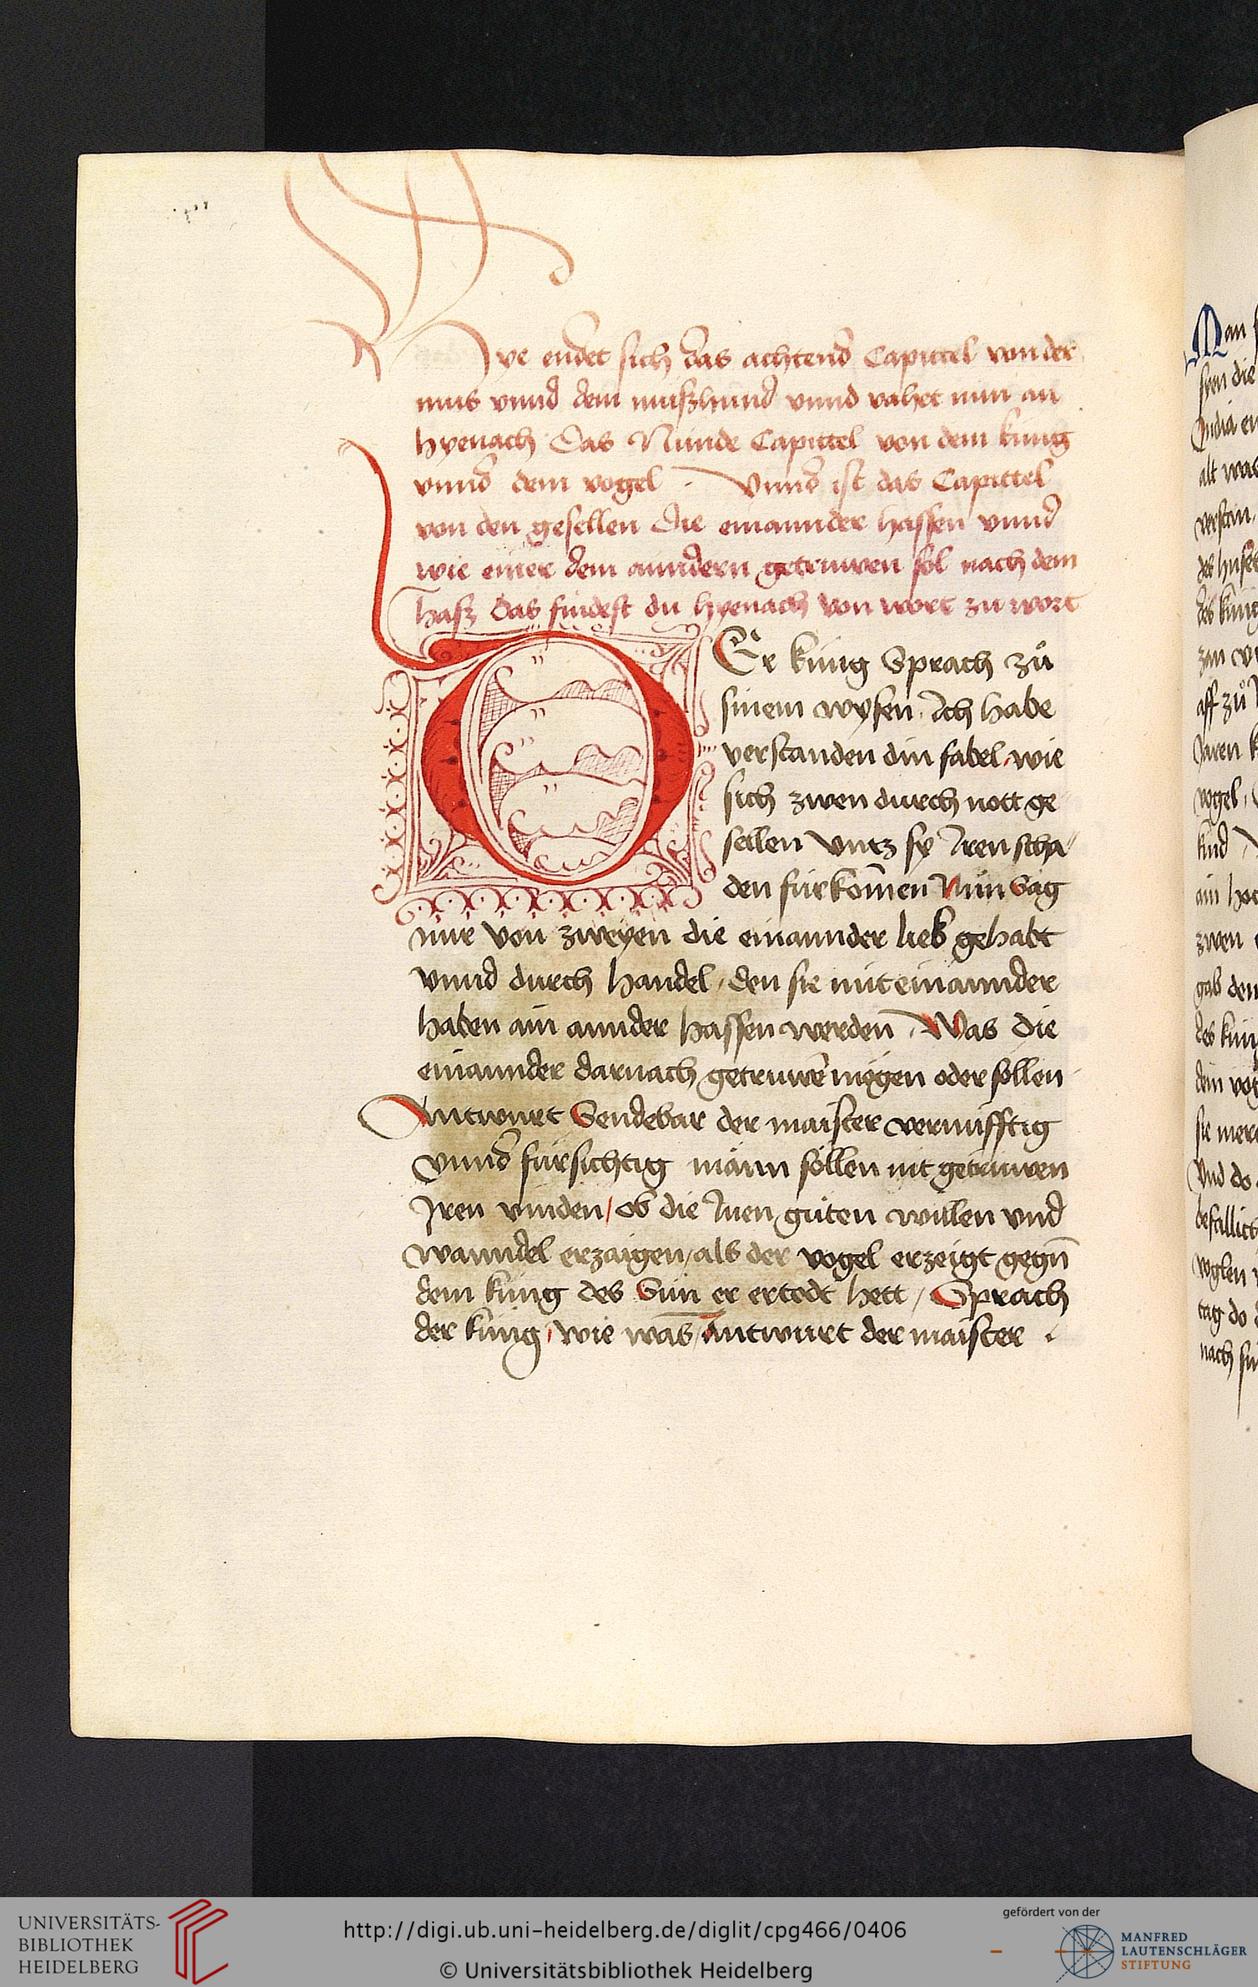 Hye endet sich das achtend Capittel von der
mus vnnd dem mußhund vnnd vahet nun an
hyenach Das Nünde Capittel von dem küng
vnnd dem vogel · Vnnd ist das Capittel
von den gesellen Die einannder hassen vnnd
wie einer dem anndern getruwen sol nach dem
hasz das findest du hyenach von wort zu wort
DEr küng Sprach zů
sinem wysen Ich habe
verstanden din fabel / wie
sich zwen durch nott ge
sellen vntz sy Iren scha
den fürkom̄en Nun Sag
mir von zweyen die einannder lieb gehabt
vnnd durch handel / den sie mit einannder
haben ain annder hassen werden̄ · Was die
einannder darnach getruwē mögen oder sollen
Antwurt Sendebar der maister vernufftig
vnnd fürsichtig mann söllen nit getruwen
Iren vinden / ob die Inen güten willen vnd
wanndel erzaigen / als der vogel erzeigt gegn̄
dem küng des Sun er ertodt hett / Sprach
der küng / wie was / Antwurt der maister ·
Man
UNIVERSITÄTS-
BIBLIOTHEK
HEIDELBERG
http://digi.ub.uni-heidelberg.de/diglit/cpg466/0406
© Universitätsbibliothek Heidelberg
gefördert von der
MANFRED
LAUTENSCHLÄGER
STIFTUNG